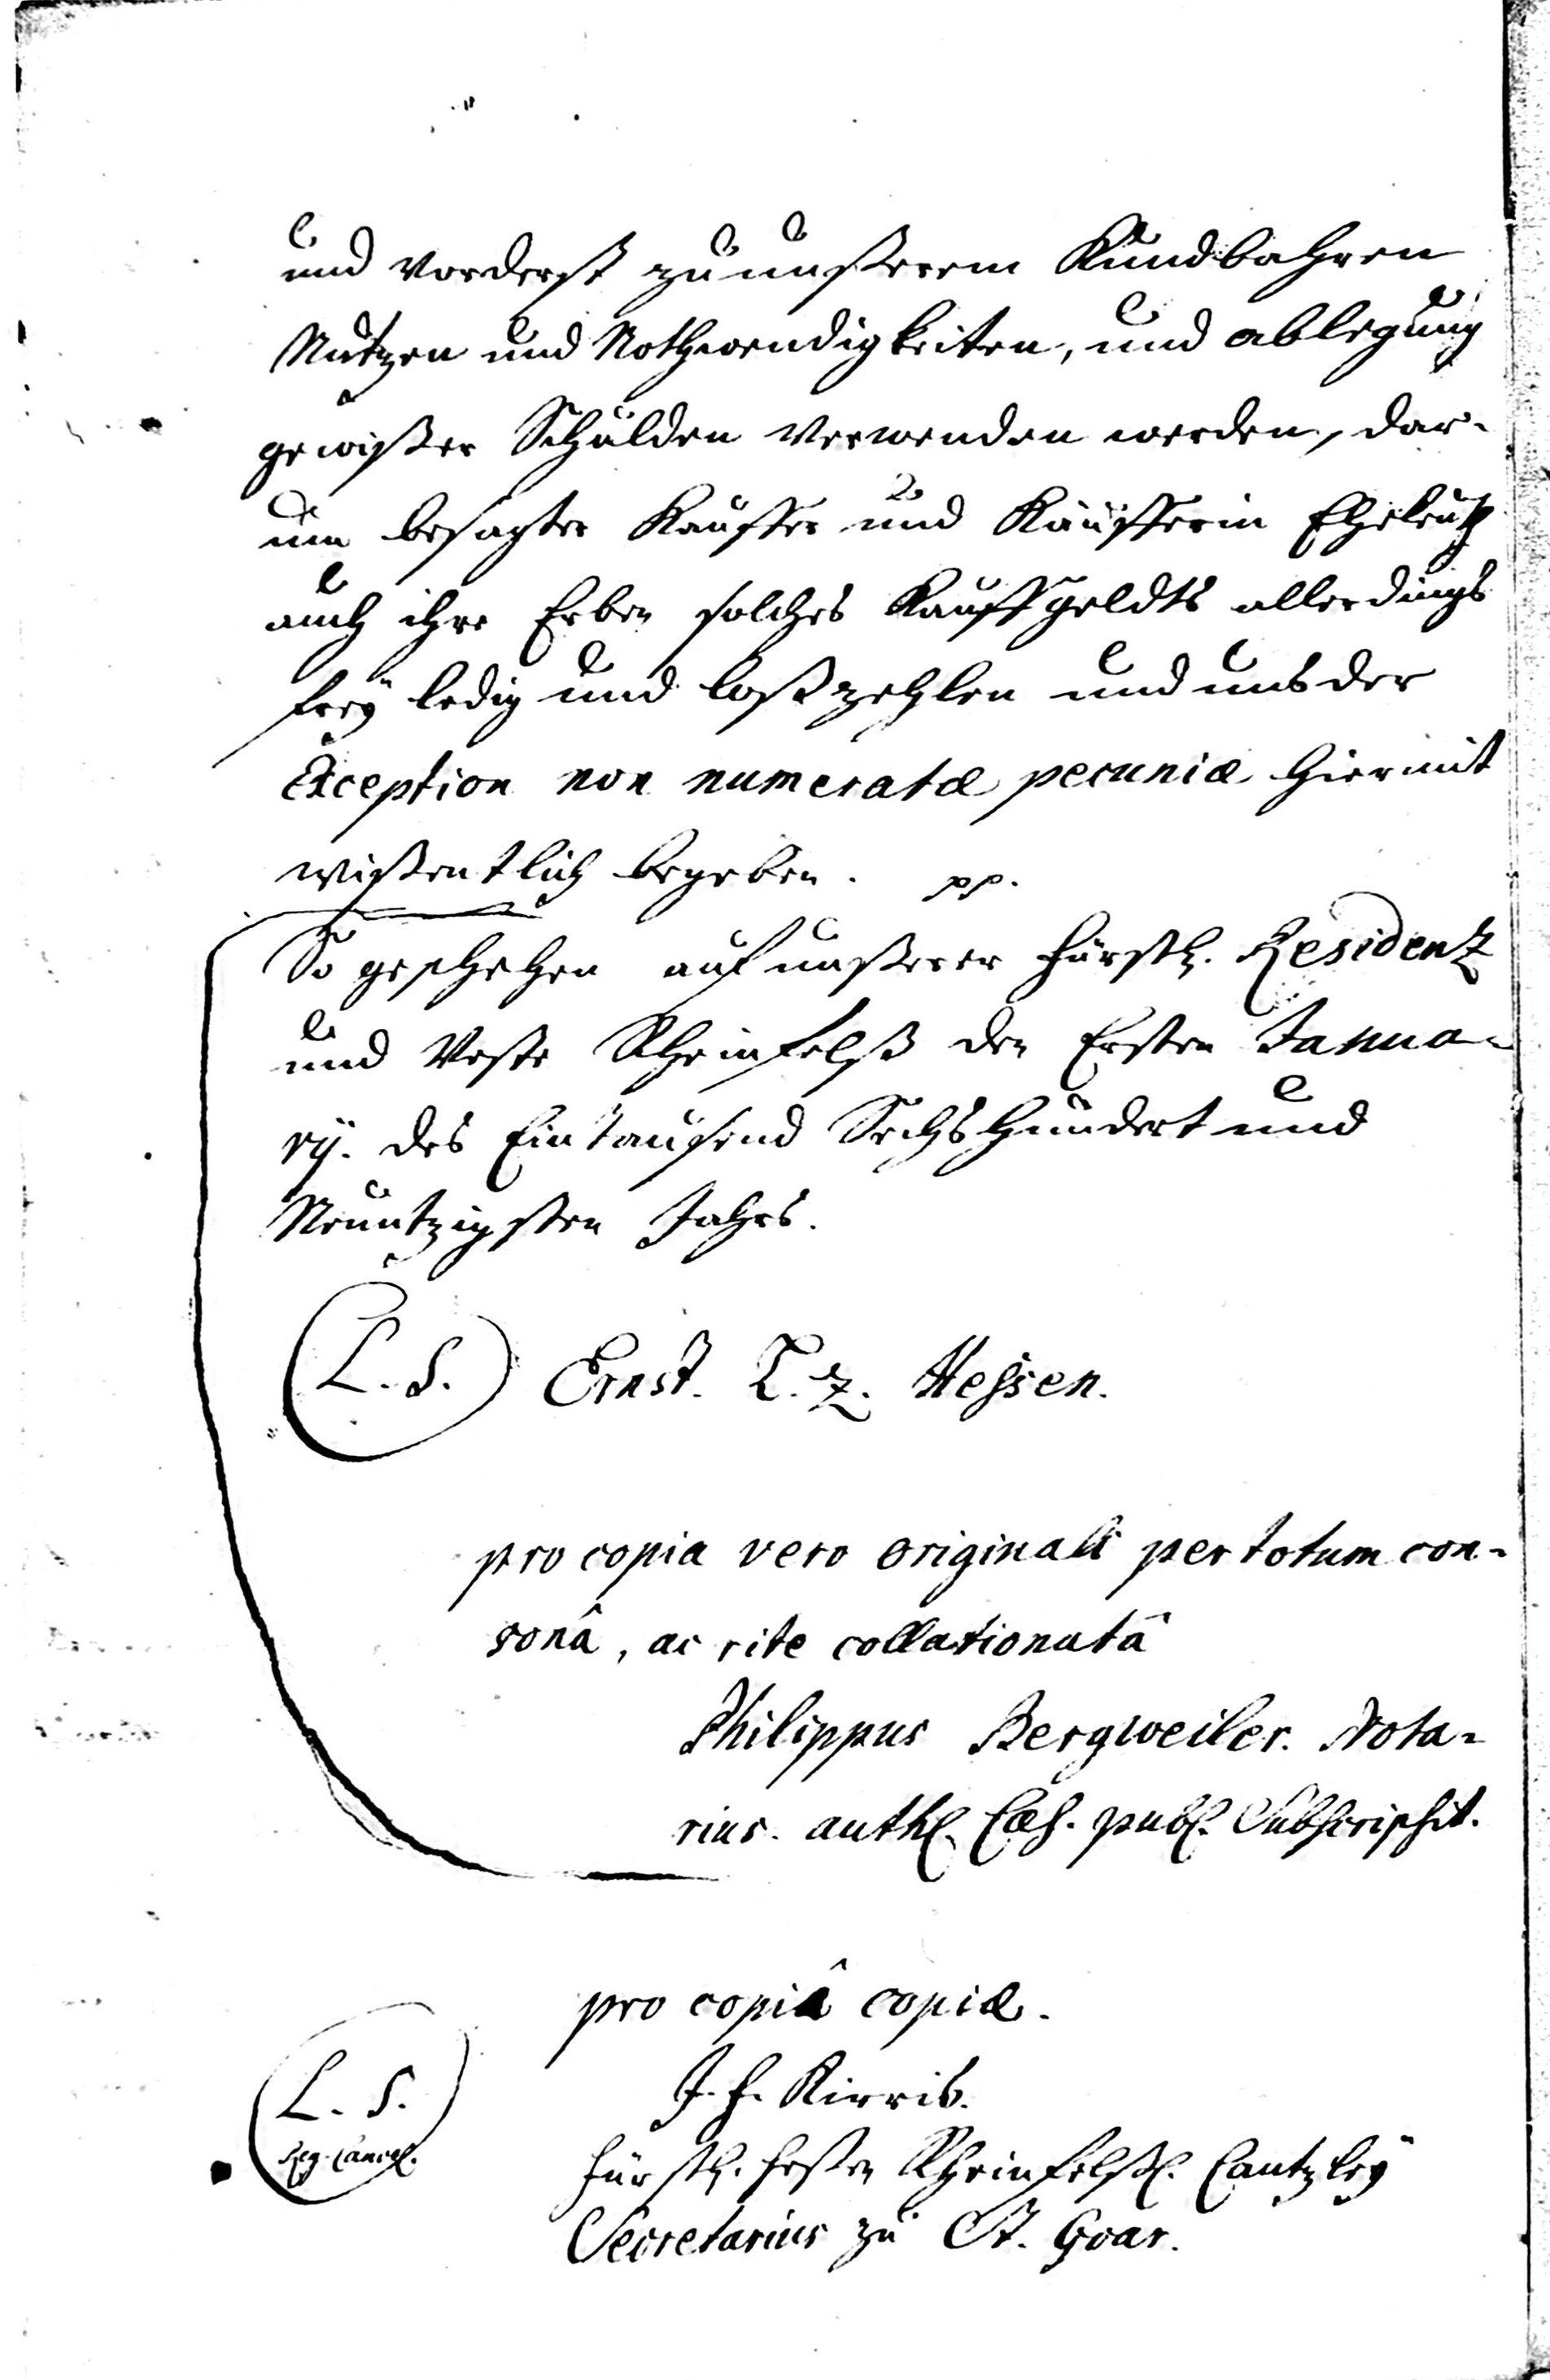 und vorderst zu unßerem Kundbahren
Nutzen und Nothwendigkeiten, und ablegung
gewißer Schulden verwenden werden, dar-
um besagter Kauffer und Käufferin Eheleuth
auch ihre Erben solches Kauffgeldts allerdings
frey ledig und loßzehlen und uns der
Exception non numeratæ pecuniæ hiermit
wißentlich begeben. pp.
So geschehen auf unßerer Fürstl. Residentz
und Veste Rheinfelß den Ersten Janua-
rÿ. des Eintausend Sechshundert und
Neuntzigsten Jahrs.
L. S. Ernst. L. z. Hessen.
pro copia vero originali per totum con-
sonâ, ac rite collationatâ
Philippus Bergweiler. Nota-
rius. auth. Cæs. publ. Subscripsit.
pro copiâ copiæ.
L. S.
Reg. Cancel.
J. H.
Fürstl. Heßen Rheinfelßl. Cantzley
Secretarius zu St. Goar.